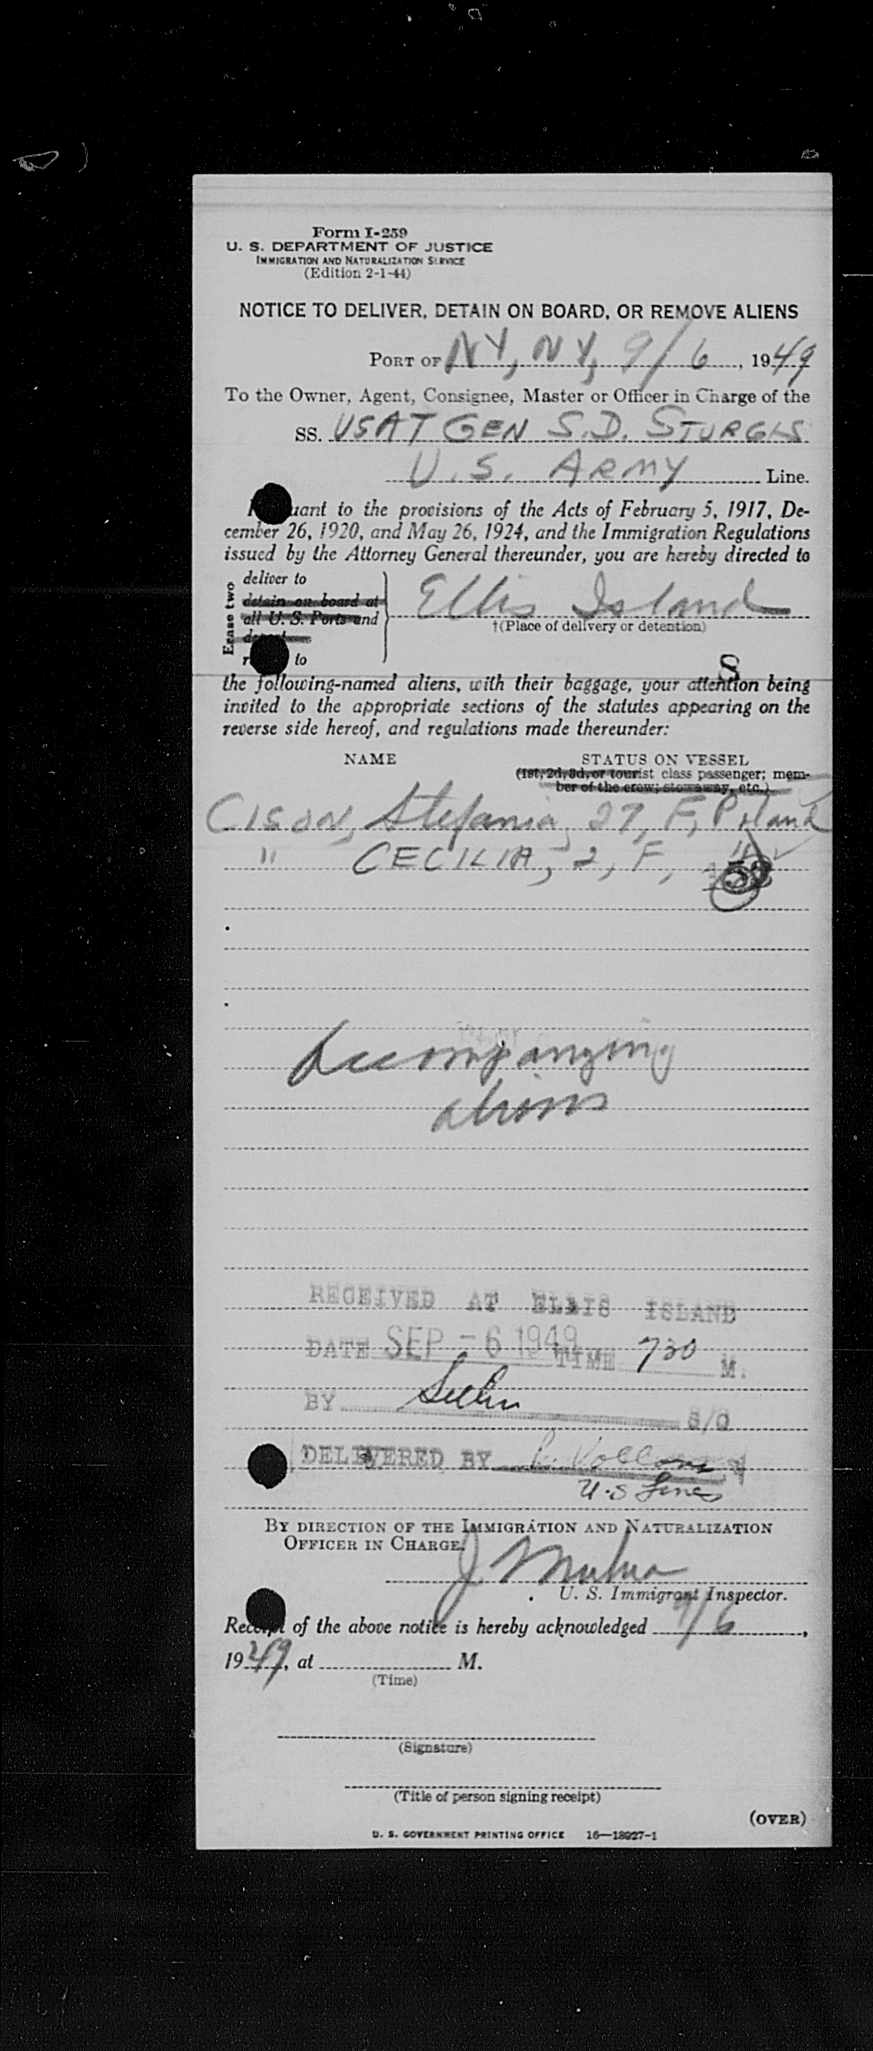 Form I-259
U. S. DEPARTMENT OF JUSTICE
IMMIGRATION AND NATURALIZATION SERVICE
(Edition 2-1-44)
NOTICE TO DELIVER, DETAIN ON BOARD, OR REMOVE ALIENS
PORT OF NY, NY, 9/6, 1949
To the Owner, Agent, Consignee, Master or Officer in Charge of the
SS. USAT GEN S.D. STURGIS
U.S. ARMY Line.
uant to the provisions of the Acts of February 5, 1917, De-
cember 26, 1920, and May 26, 1924, and the Immigration Regulations
issued by the Attorney General thereunder, you are hereby directed to
Erase two
deliver to
detain on board at
all U. S. Ports and
r to
Ellis Island
†(Place of delivery or detention)
8
the following-named aliens, with their baggage, your attention being
invited to the appropriate sections of the statutes appearing on the
reverse side hereof, and regulations made thereunder:
NAME STATUS ON VESSEL
(1st, 2d, 3d, or tourist class passenger; mem-
ber of the crew; stowaway, etc.)
CISON, Stefania, 27, F, Poland
" CECILIA, 2, F, "
Accompanying
aliens
RECEIVED AT ELLIS ISLAND
DATE SEP - 6 1949 TIME 730 M.
BY S/O
DELIVERED BY
U.S Lines
BY DIRECTION OF THE IMMIGRATION AND NATURALIZATION
OFFICER IN CHARGE.
J
U. S. Immigrant Inspector.
Receipt of the above notice is hereby acknowledged 9/6,
1949, at M.
(Time)
(Signature)
(Title of person signing receipt)
(OVER)
U. S. GOVERNMENT PRINTING OFFICE 16—18927-1